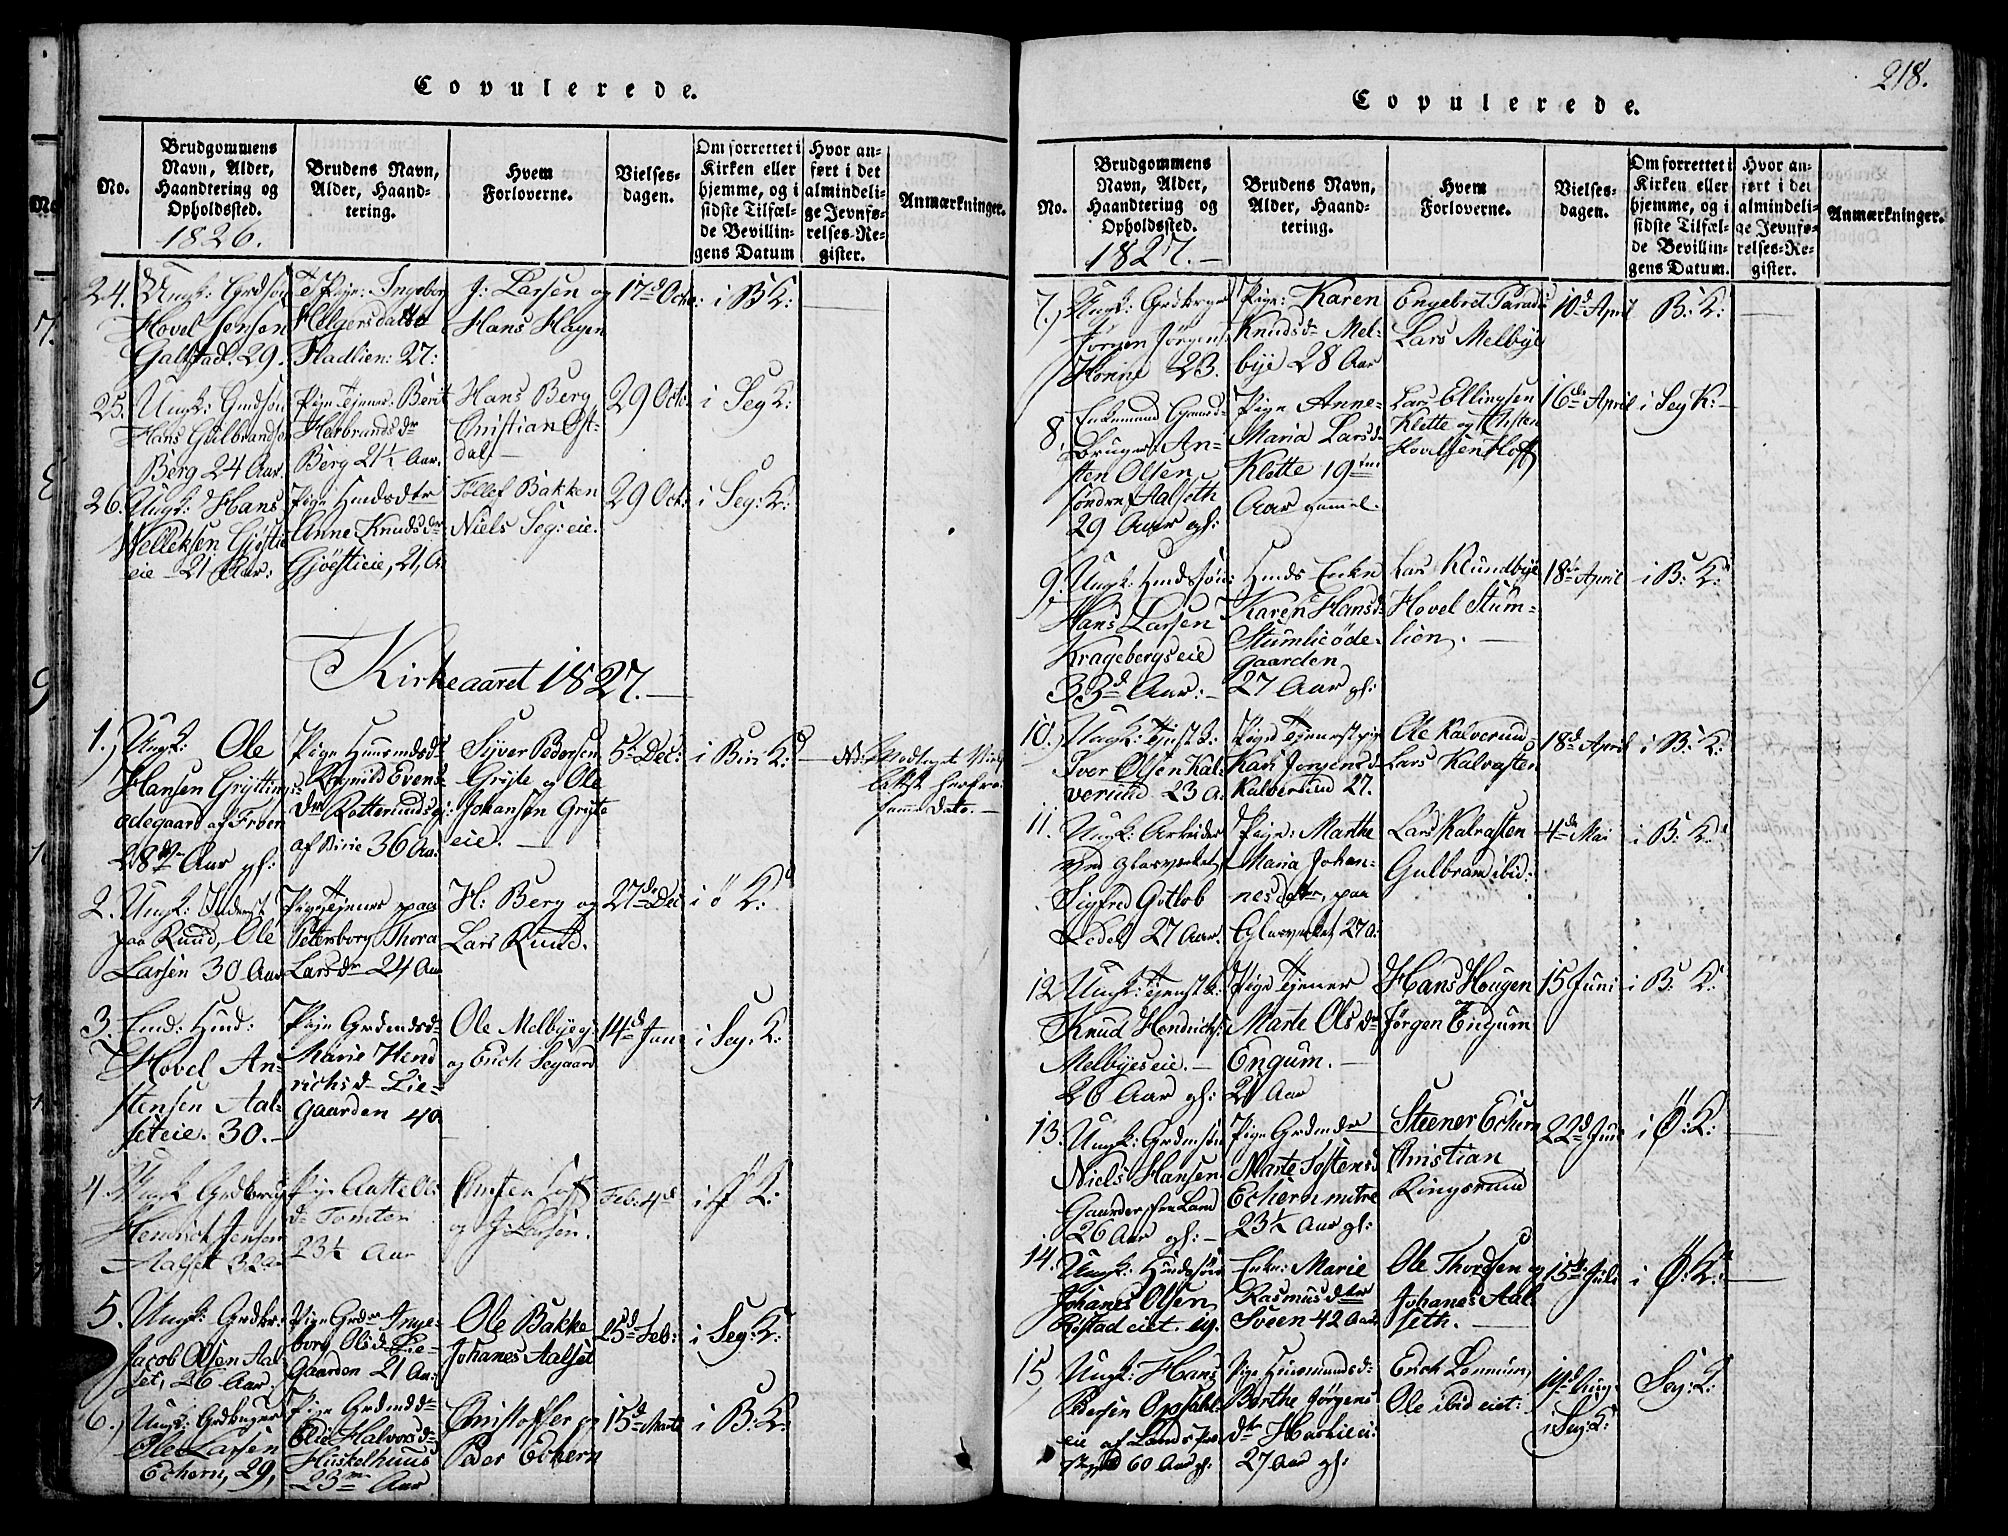 Copulerede.
No.
Brudgommens
Navn, Alder,
Haandtering og
Opholdssted.
1826.
Brudens Navn,
Alder, Haand-
tering.
Hvem
Forloverne.
Vielses-
dagen.
Om forrettet i
Kirken eller
hjemme, og i
sidste Tilfæl-
de Bevillin-
gens Datum
Hvor an-
ført i det
almindeli-
ge Jevnfø-
relses-Re-
gister.
Anmærkninger.
24. Ungk:
Hovel Jensen
29.
Pige: Ingebor
Helgersdatter
Fladlien: 27:
J: Larsen og
Hans Hagen
17d Octo: i B K:
25. Ungk:
Hans Gulbrandsen
Berg 24 Aar.
Pige Tjener: Berit
Herbrandsdr
Berg 21½ Aar.
Hans Berg
Christian Ost-
dal.
29 Oct: i Seg K:
26. Ungk: Hans
eie - 21 Aar:
Pige Hmdsdtr
Anne Knudsdr
21, A
Tollef Bakken
Niels Seg: eie.
29 Oct: i Seg: K:
Kirkeaaret 1827.
1. Ungk: Ole
Hansen Grytting
ødegaard af Froen
28de Aar gl:
Pige Huusmdsd
Ragnild Evens
dr
af Birie 36 Aa:
Syver Pedersen
Gryte og Ole
Johansen Gryte
eie.
5te Dec: i Biri K:
NB:
samme Dato.
2. Ungk: Inderst
paa Ruud, Ole
Larsen 30 Aar
Pige Tjener paa
Petersborg Thora
Larsdr 24 Aar
H: Berg og
Lars Ruud.
27de Dec i Ø K:
3. Hmd:
Hovel An-
stensen Aal-
seteie. 30.
Pige Grdmdsd
Marie Hend
richsd Lie-
gaarden 40
Ole Melbye
og Erich Segaard
14d Jan i Seg. K:
4. Ungk Grdbrug
Hendrich Jensen
Aalset 32
Pige
d Tomter
23½ Aar
og J: Larsen.
Feb: 4d
5. Ungk: Grdbr:
Jacob Olsen Aal-
set, 26 Aar.
Pige Grdr Inge-
borg Olsd Lie-
gaarden 21 Aar
Ole Bakke
Johanes Aalset
25d Feb: i Seg: K:
6. Ungk: Grdbruger
Ole Larsen
Echern, 29,
Pige Grdmdd
Elie Halvorsd
Huskelhuus
23 Aar
Christoffer og
Peder Echern
15d Marts i B: K:
218.
Copulerede.
No.
Brudgommens
Navn, Alder,
Haandtering og
Opholdssted.
1827.
Brudens Navn,
Alder, Haand-
tering.
Hvem
Forloverne.
Vielses-
dagen.
Om forrettet i
Kirken eller
hjemme, og i
sidste Tilfæl-
de Bevillin-
gens Datum.
Hvor an-
ført i det
almindeli-
ge Jevnfø-
relses-Re-
gister.
Anmærkninger.
7. Ungk: Grdbruger
Jørgen Jørgens:
Honne 23.
Pige: Karen
Knudsdr Mel-
bye 28 Aar
Engebret Paradis
Lars Melbye
10d April B: K:
8. Enkemand Gaard-
bruger An-
sten Olsen
søndre Aalseth
29 Aar gl:
Pige Anne-
Maria Larsd
Klette 19
Aar gammel.
Lars Ellingsen
Klette og Austen
Hovelsen Hoff
16de April i Seg K:
9. Ungk: Hmdssøn
Hans Larsen
Kragebergseie
33d Aar:
Hmds Enke
Karen Hansd
Stumlieøde-
gaarden
27 Aar gl:
Lars Klundbye
Hovel Stum-
lien.
18de April i B: K:
10. Ungk: Tjenst k:
Iver Olsen Kal-
verund 23 A.
Pige Tjenestepig
Kari Jørgensd
Kalverud 27.
Ole Kalverud
Lars Kalvasten
18d April i B: K:
11. Ungk: Arbeider
ved Glasværket
Sigfred Gotlob
Ledel 27 Aar.
Pige: Marthe
Maria Johan-
nesdatr, paa
Glasværket 27 A:
Lars Kalvasten
Gulbrand ibid:
4de Mai i B: K:
12 Ungk: Tjenst k:
Knud Hendrichs:
Melbyeseie.
26 Aar gl:
Pige Tjener
Marte Olsdr
Engum.
Aar
Hans Hougen
Jørgen Engum
15 Juni i B: K:
13. Ungk: Grdmsøn
Niels Hansen
Gaarder fra Land
26 Aar gl:
Pige Grdmdr
Marte Tostensd
Echern mitre
23½ Aar gl:
Steener Echern
Christian
Ringsrund
22d Jun i Ø: K:
14. Ungk: Hmdssøn
Johanes Olsen
Røstad eiet. 29.
Enke: Marie
Rasmusdtr
Sveen 42 Aar
Ole Thordsen og
Johanes Aal-
seth.
15de Juli i Ø: K:
15 Ungk: Hans
Pedersen Opsahl-
eie af Lands Præ
60 Aar gl:
Pige Huusmandsd
Berthe Jørgens
dtr
27 Aar gl:
Erich
Ole ibid eiet:
19d Aug.
i Seg: K:
Seg: K: